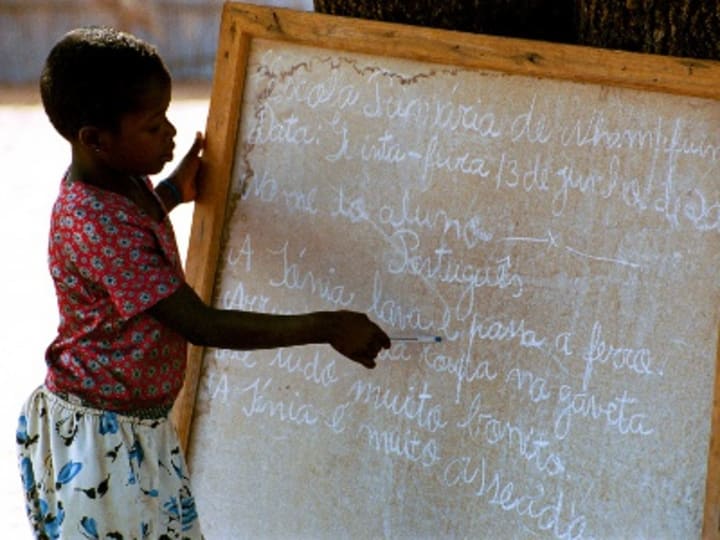 Escola Primária de Nham
Data: Sexta-feira 13 de junho de 20
Nome do aluno x
Português
A Tánia lava e passa a ferro.
Arru a roupa na gaveta
tudo muito bonito.
A Tánia é muito asseada